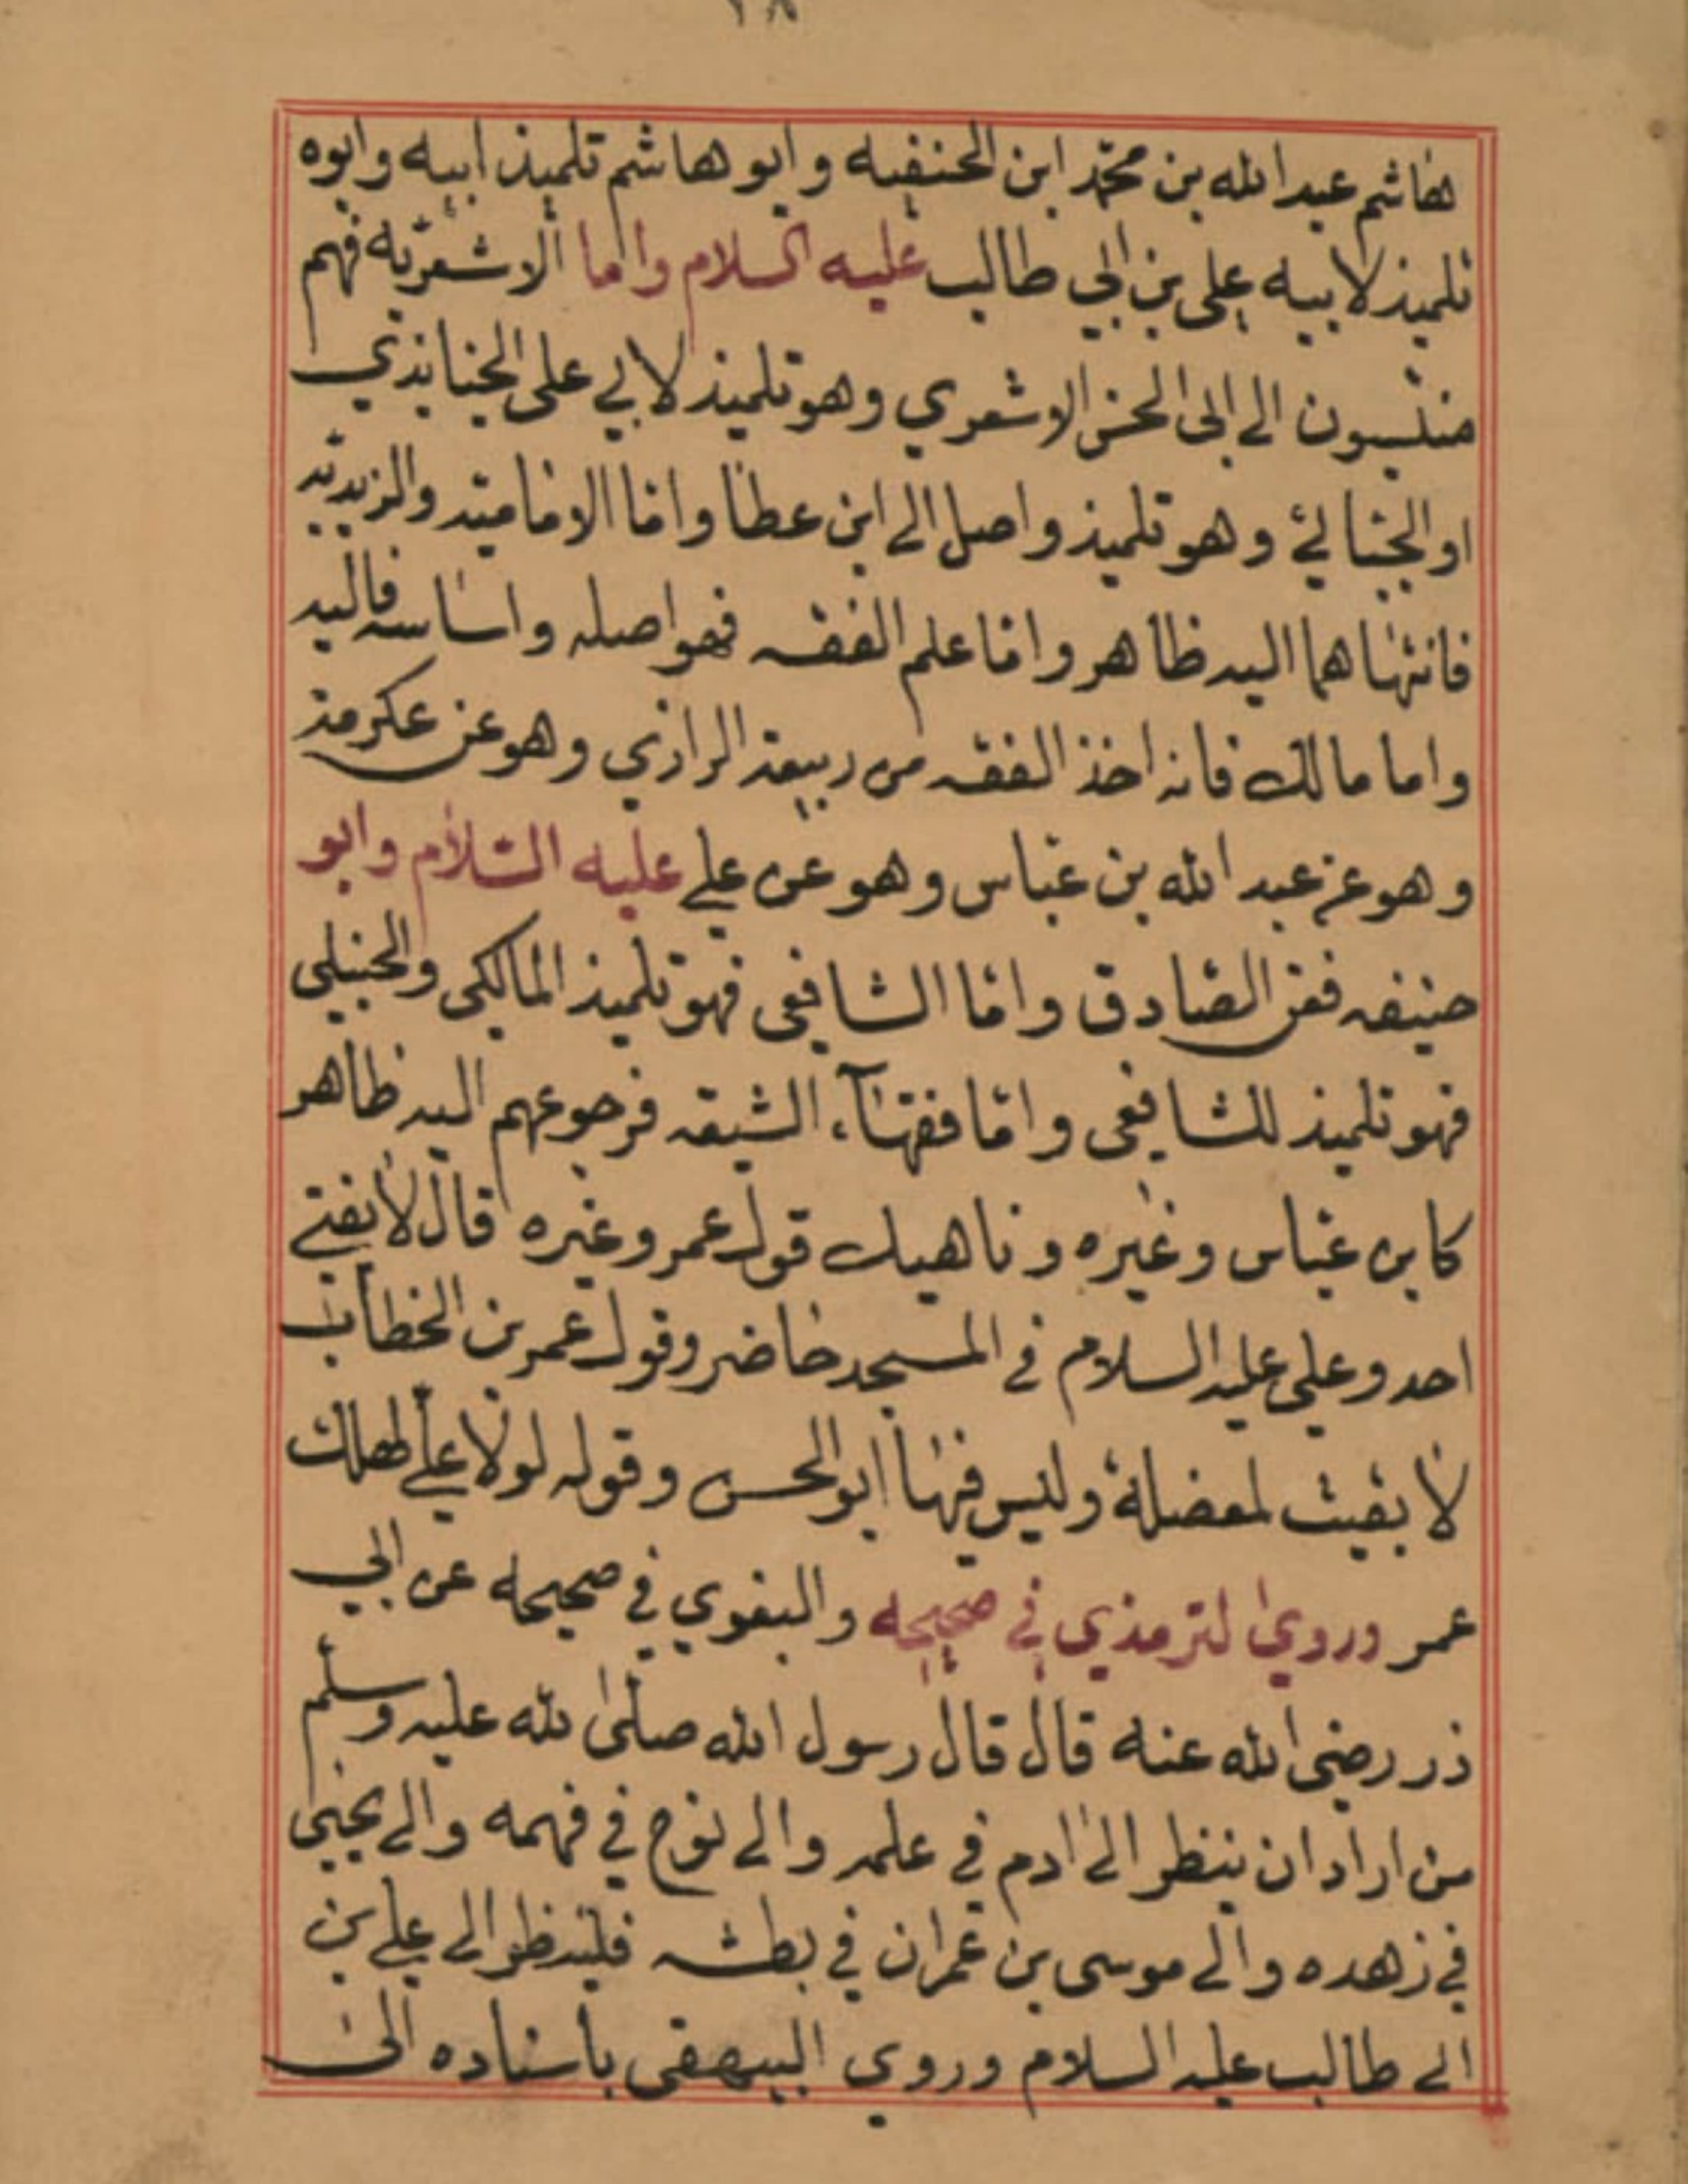 ٢٨
هاشم عبد الله بن محمّد ابن الحنفيه وابو هاشم تلميذ ابيه وابوه
تلميذ لابيه علي بن ابي طالب عليه السلام واما الاشعريه فهم
منتسبون الى ابى الحسن الاشعري وهو تلميذ لابي على الحنابذي
او الجبائي وهو تلميذ واصل الى ابن عطا واما الاماميه والزيديه
فانتهاهما اليه ظاهر واما علم الفقه فهو اصله واساسه فاليه
واما مالك فانه اخذ الفقه من ربيعة الرازي وهو عن عكرمة
وهو عن عبد الله بن عباس وهو عن علي عليه السلام وابو
حنيفه فعن الصادق واما الشافعي فهو تلميذ المالكى والحنبلى
فهو تلميذ للشافعى واما فقهاء الشيعه فرجوعهم اليه ظاهر
كابن عباس وغيره وناهيك قول عمر وغيره قال لا يفتي
احد وعلي عليه السلام في المسجد حاضر وقول عمر بن الخطاب
لا بقيت لمعضلة وليس فيها ابو الحسن وقوله لولا علي لهلك
عمر وروى لترمذي في صحيحه والبغوي في صحيحه عن ابي
ذر رضى الله عنه قال قال رسول الله صلى لله عليه وسلم
من اراد ان ينظر الى ادم في علمه والى نوح في فهمه والى يحيى
في زهده والى موسى بن عمران في بطشه فلينظر الى علي بن
الي طالب عليه السلام وروي البيهقي باسناده الى